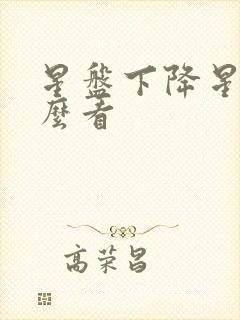 星盘下降星
麼看
高荣昌